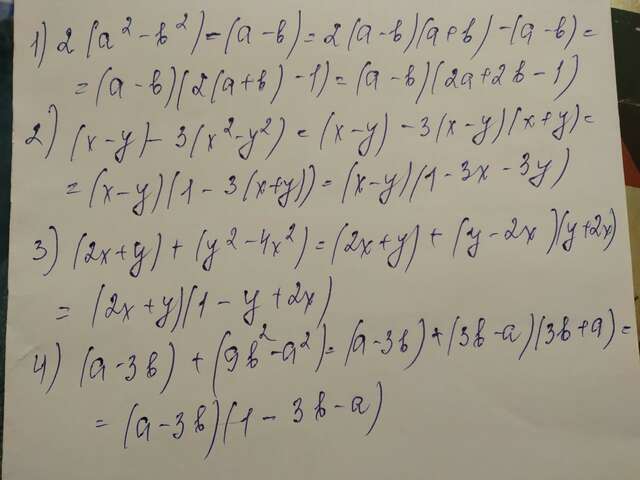 1) 2(a² - b²) - (a - b) = 2(a - b)(a + b) - (a - b) =
= (a - b)(2(a + b) - 1) = (a - b)(2a + 2b - 1)
2) (x - y) - 3(x² - y²) = (x - y) - 3(x - y)(x + y) =
= (x - y)(1 - 3(x + y)) = (x - y)(1 - 3x - 3y)
3) (2x + y) + (y² - 4x²) = (2x + y) + (y - 2x)(y + 2x)
= (2x + y)(1 - y + 2x)
4) (a - 3b) + (9b² - a²) = (a - 3b) + (3b - a)(3b + a) =
= (a - 3b)(1 - 3b - a)